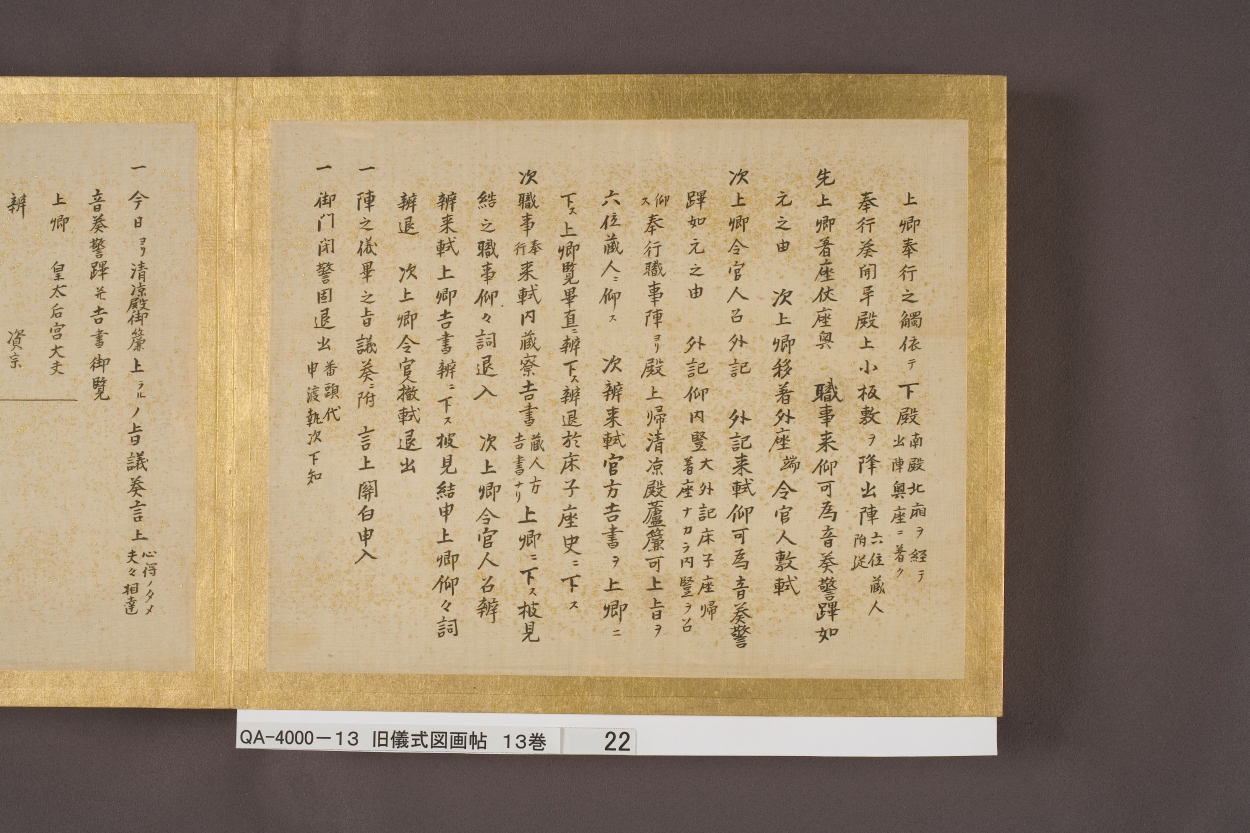 上卿奉行之觸依テ下殿南殿北廂ヲ経テ出陣奥座ニ着ク
奉行奏聞畢殿上小板敷ヲ降出陣六位蔵人附従
先上卿着座仗座奥　職事来仰可為音奏警蹕如
元之由　次上卿移着外座端令官人敷軾
次上卿令官人召外記　外記来軾仰可為音奏警
蹕如元之由　外記仰内豎大外記床子座帰着座ナカラ内豎ヲ召
仰ス奉行職事陣ヨリ殿上帰清凉殿蘆簾可上旨ヲ
六位蔵人ニ仰ス　次辨来軾官方吉書ヲ上卿ニ
下ス上卿覧畢直ニ辨下ス辨退於床子座史ニ下ス
次職事奉行来軾内蔵寮吉書蔵人方吉書ナリ上卿ニ下ス披見
結之職事仰々詞退入　次上卿令官人召辨
辨来軾上卿吉書辨ニ下ス披見結申上卿仰々詞
辨退　次上卿令官人撤軾退出
一陣之儀畢之旨議奏ニ附　言上関白申入
一御門閉警固退出番頭代申渡執次下知
一今日ヨリ清凉殿御簾上ラルノ旨議奏言上心得ノタメ夫々相達
音奏警蹕并吉書御覧
上卿　皇太后宮大夫
辨　資宗
QA-4000-13　旧儀式図画帖　13巻　22